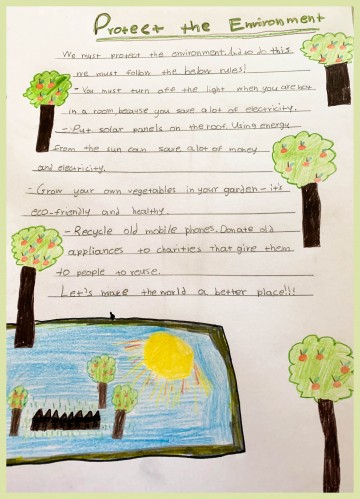 Protect the Environment
We must protect the environment. And to do this
we must follow the below rules!
- You must turn off the light when you are not
in a room, because you save a lot of electricity.
- Put solar panels on the roof. Using energy
from the sun can save a lot of money
and electricity.
- Grow your own vegetables in your garden - it's
eco-friendly and healthy.
- Recycle old mobile phones. Donate old
appliances to charities that give them
to people to reuse.
Let's make the world a better place!!!